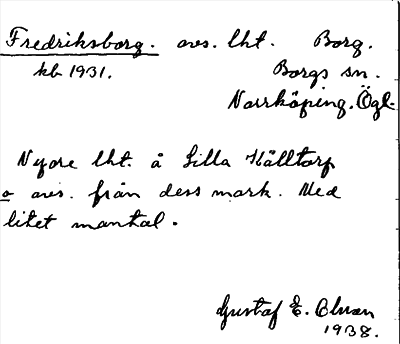 Fredriksborg. avs. lht. Borg.
kb 1931. Borgs sn.
Norrköping. Ögl.
Nyare lht. å Lilla Källtorp
o avs. från dess mark. Med
litet mantal.
Gustaf E.
1938.